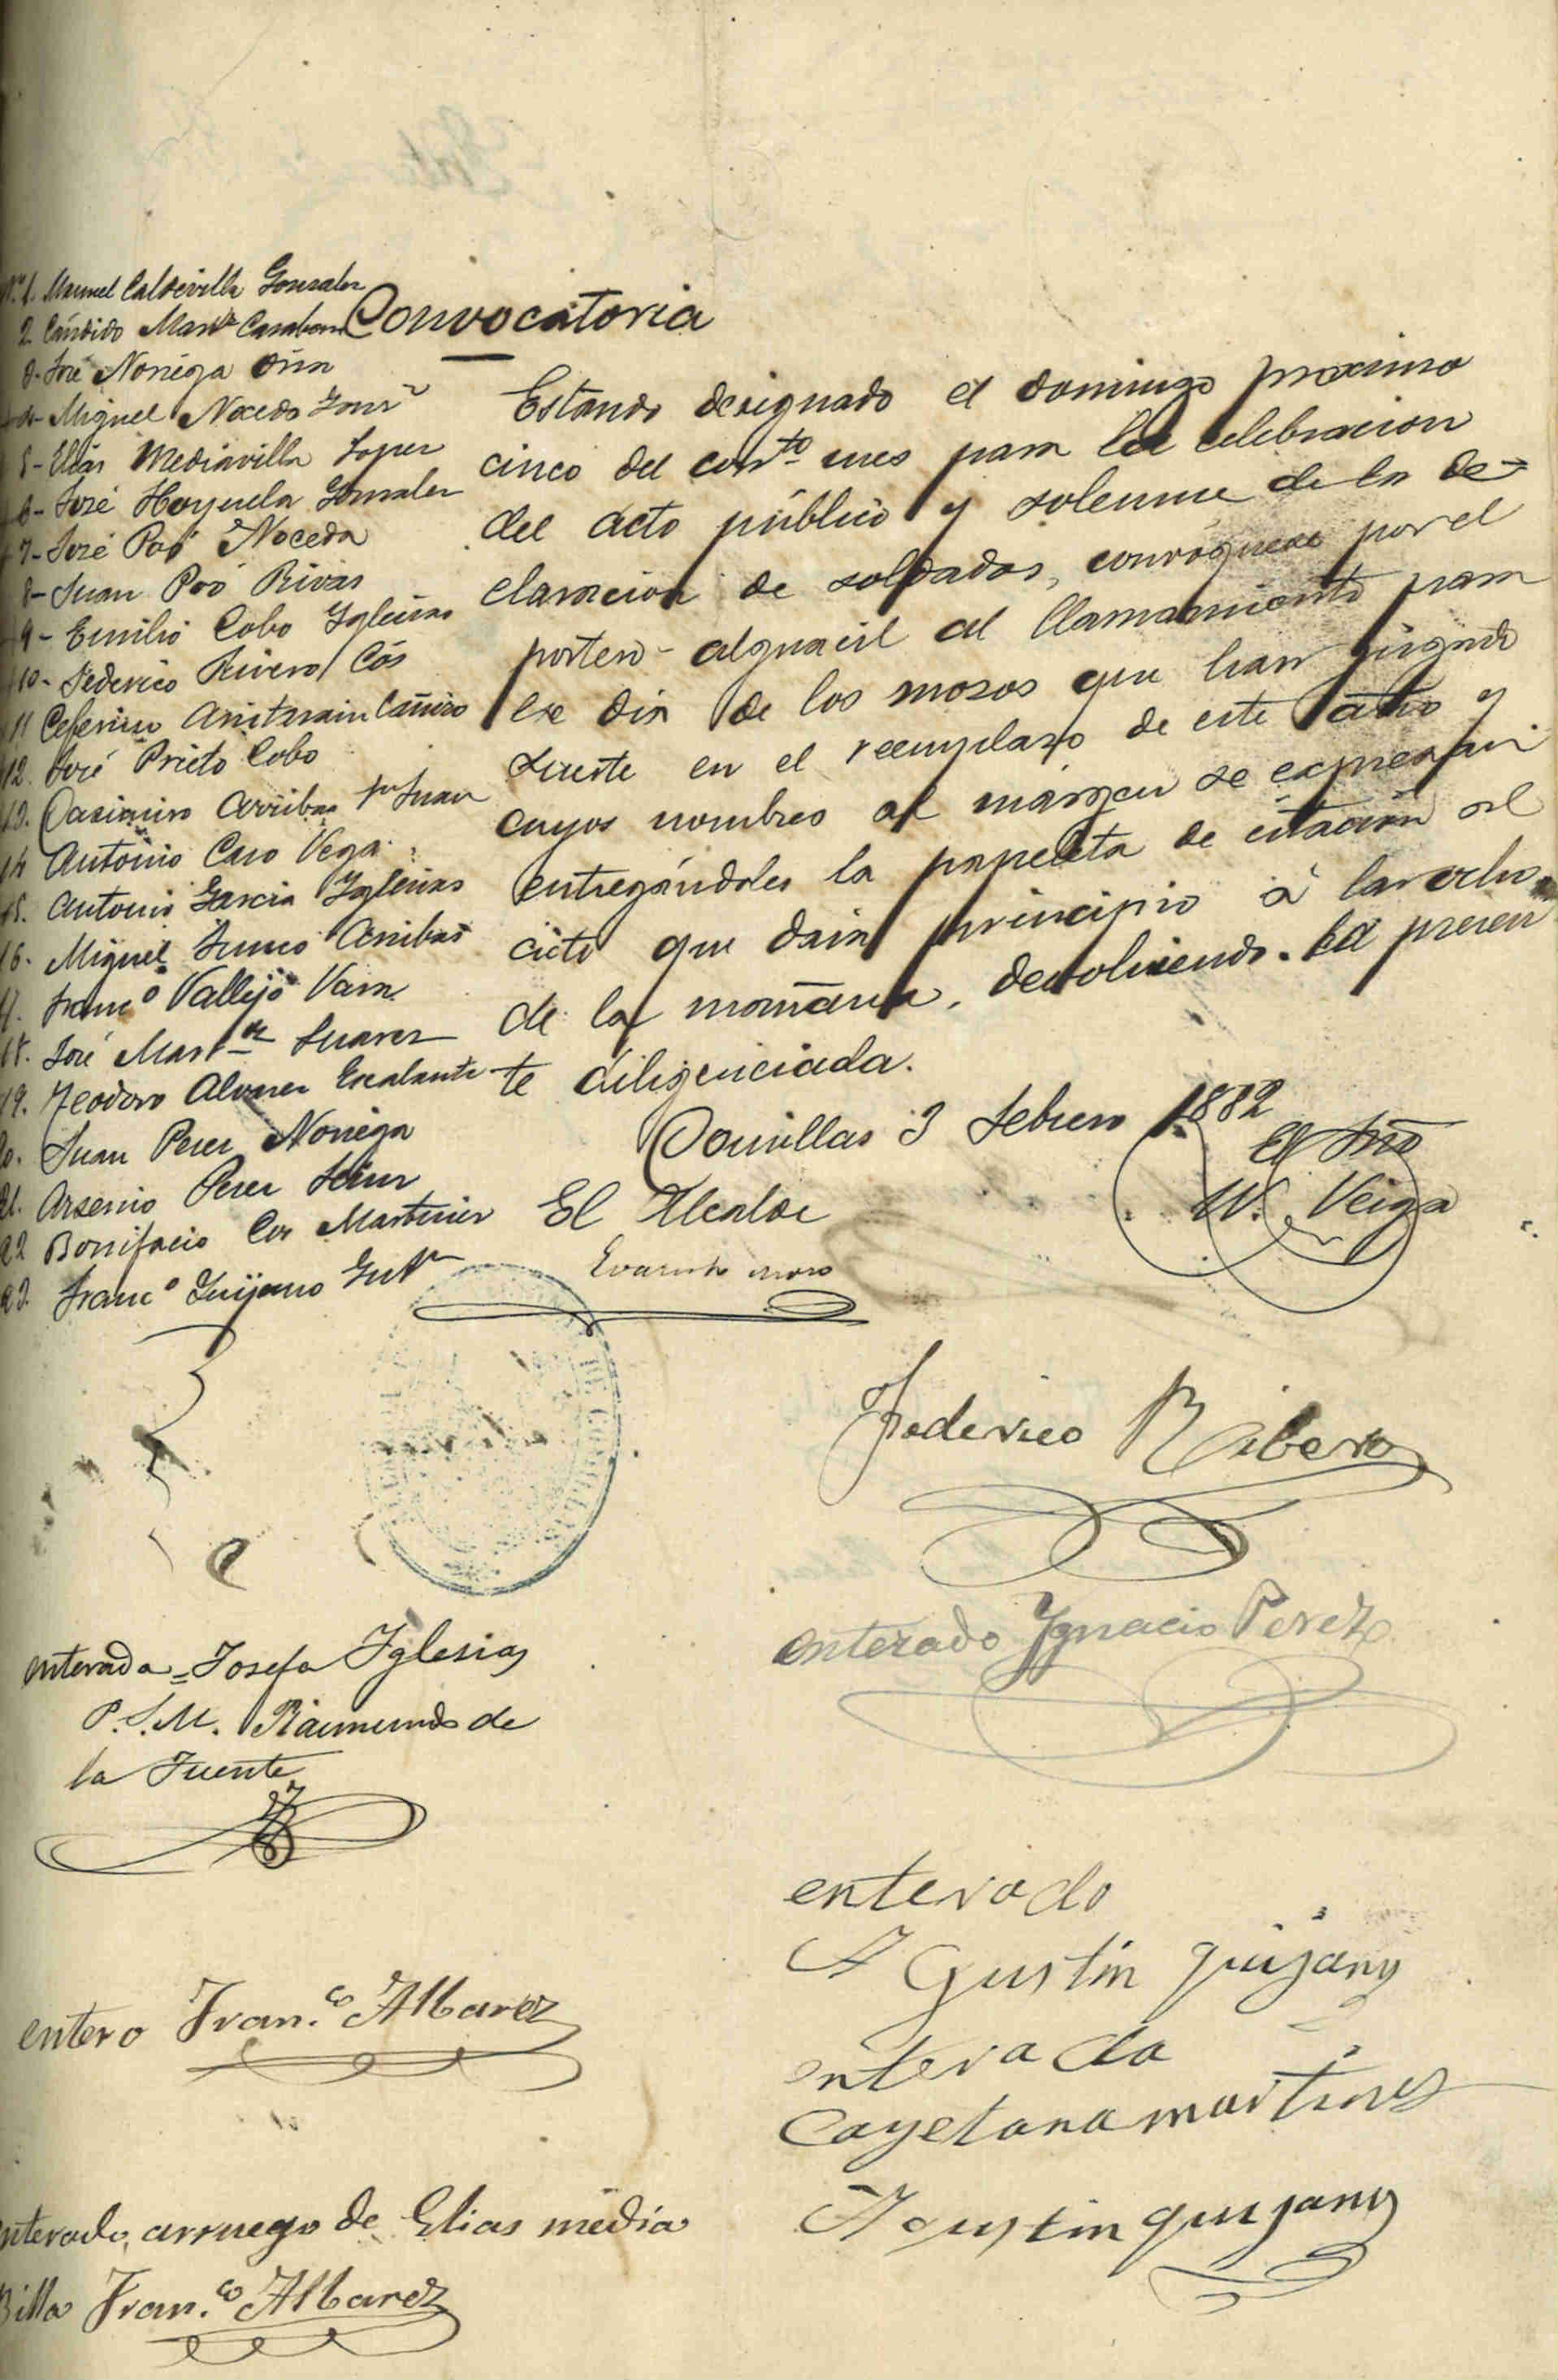 Nº 1. Manuel Caldevilla Gonzalez
2. Cándido Mar
3. José Noriega Dias
4- Miguel Nocedo Gonz
5- Elias Mediavilla Lopez
6- José Hoyuela Gonzalez
7- José Poó Noceda
8- Juan Poó Rivas
9- Emilio Cobo Yglesias
10- Federico Rivero Cós
11 Ceferino
12. José Prieto Cobo
13. Casimiro Arribas Sn Juan
14 Antonio Caro Vega
15. Antonio Garcia Yglesias
16. Miguel Arribas
17. Francº Vallejo Vara
18. José Martnz Suarez
19. Teodoro Alvarez Escalante
20. Juan Perez Noriega
21. Arsenio Perez
22 Bonifacio Cos Martinez
23. Francº Quijano Gut
Convocatoria
Estando designado el domingo proximo
cinco del corrto mes para la celebracion
del acto público y solemne de la de-
claracion de soldados, convóquese por el
portero-alguacil al llamamiento para
ese dia de los mozos que han jugado
suerte en el reemplazo de este año y
cuyos nombres al márgen se expresan
entregándoles la papeleta de citación al
acto que dará principio á las ocho
de la mañana, devolviendo la presen
te diligenciada.
Comillas 3 Febrero 1882
El Alcalde
El Srio
W. Veiga
Evaristo
Federico Ribero
enterado Ygnacio Perez
enterada = Josefa Yglesias
P.S.M. Raimundo de
la Fuente
enterado
Agustin quijano
entero Fran.co Albarez
enterada
Cayetana martines
Agustin quijano
enterado, arruego de Elias media
Billa Fran.co Albarez